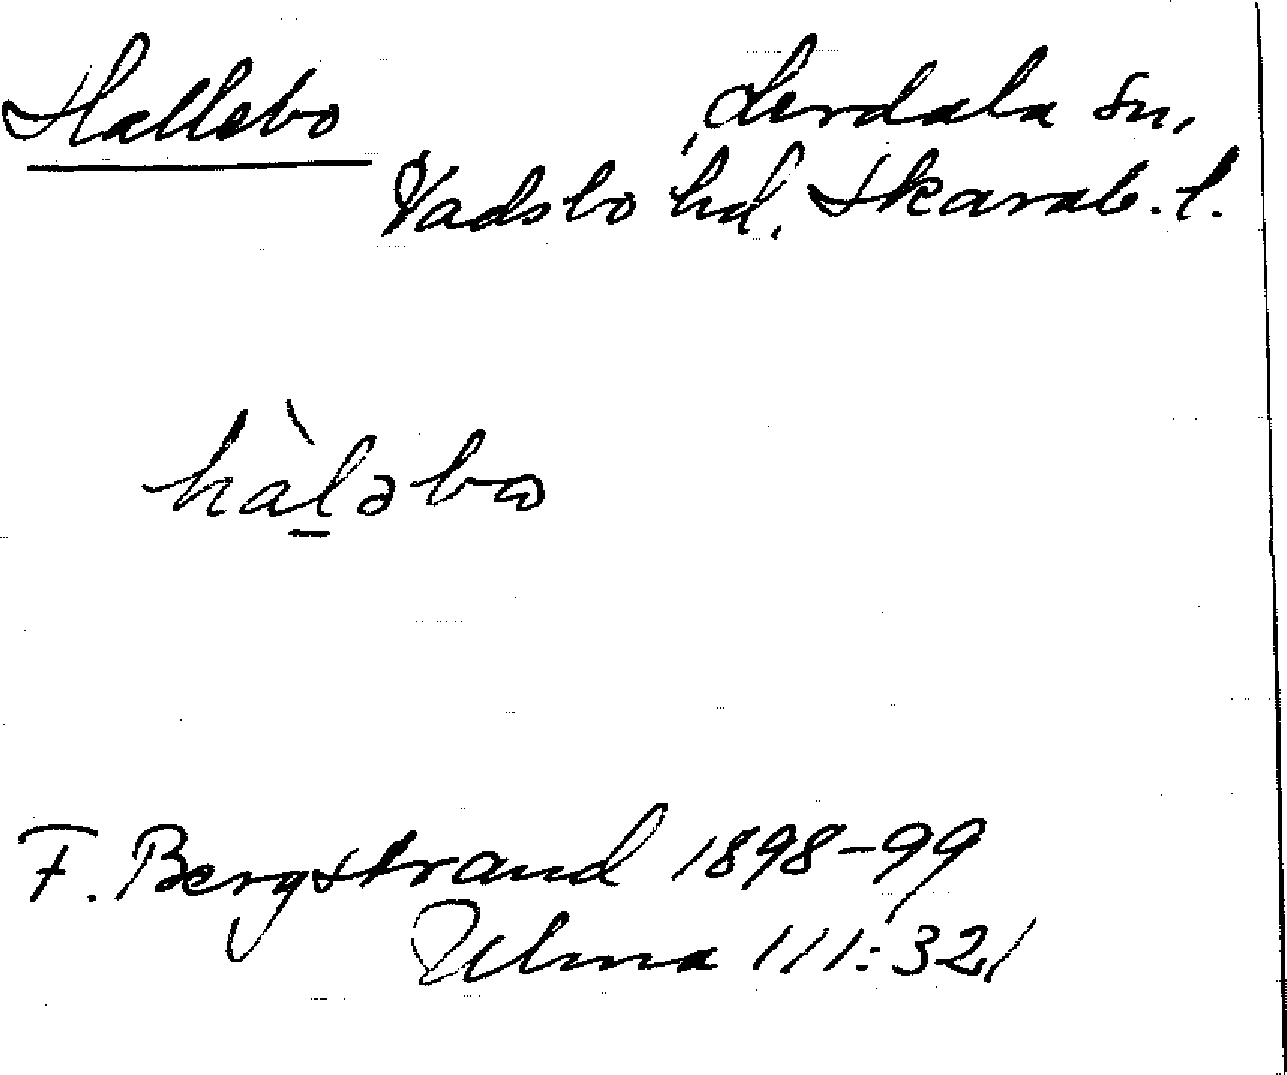 Hallebo Lerdala Sn,
Vadsbo hd. Skarab. l.
hàl̲əbɷ
F. Bergstrand 1898-99
Ulma 111:321